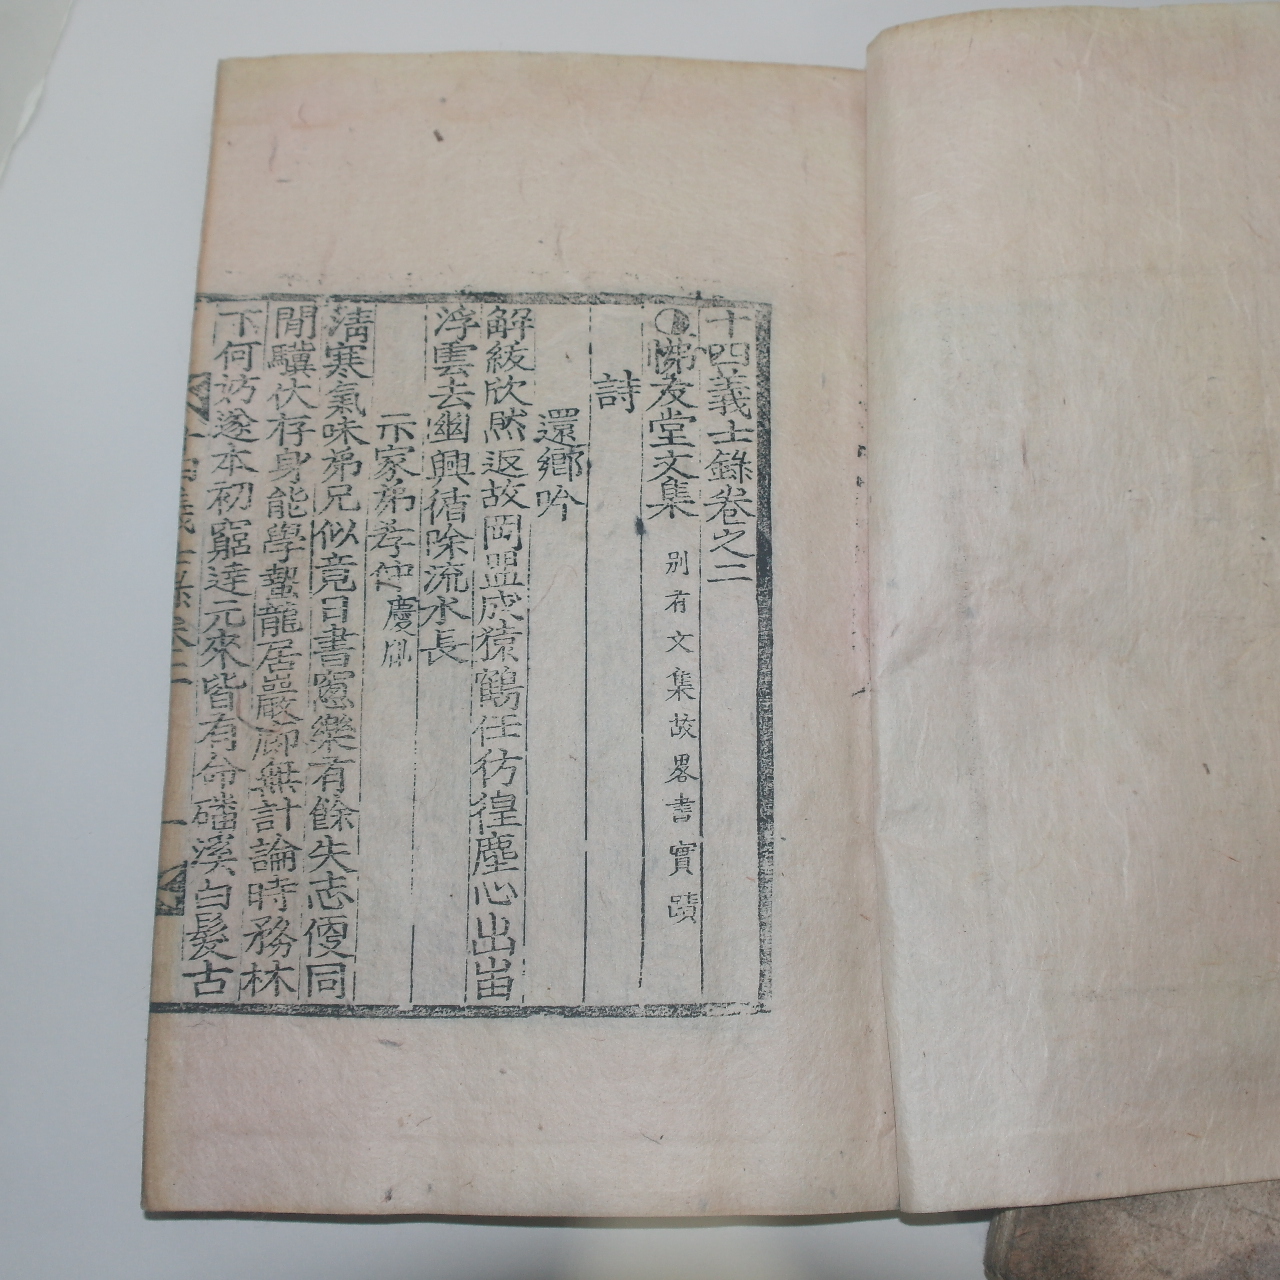 十四義士錄卷之二
怫友堂文集 別有文集故畧書實蹟
詩
還鄉吟
解紱欣然返故岡盟成猿鶴任彷徨塵心出岫
浮雲去幽興循除流水長
示家弟孝仲慶胤
淸寒氣味弟兄似竟日書窓樂有餘失志便同
閒驥伏存身能學蟄龍居巖廊無計論時務林
下何妨遂本初窮達元來皆有命磻溪白髮古
十四義士錄卷二 一